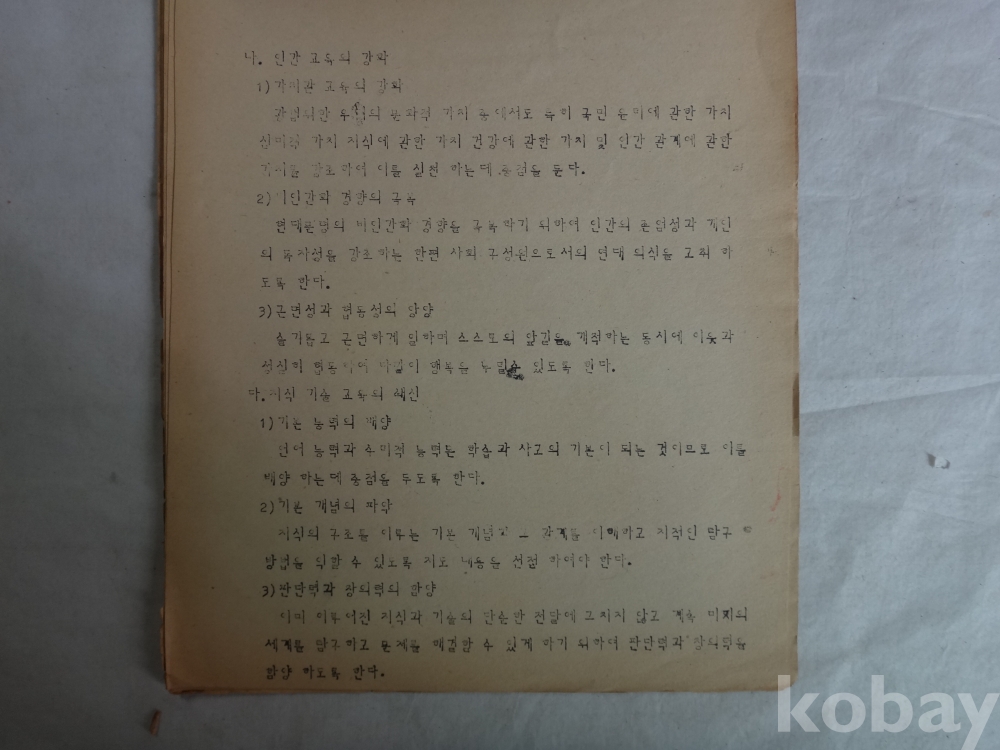 나. 인간 교육의 강화
1)가치관 교육의 강화
광범위한 우리의 문화적 가치 중에서도 특히 국민 윤리에 관한 가치
심미적 가치 지식에 관한 가치 건강에 관한 가치 및 인간 관계에 관한
가치를 강조하여 이를 실천 하는데 중점을 둔다.
2)비인간화 경향의 극복
현대문명의 비인간화 경향을 극복하기 위하여 인간의 존엄성과 개인
의 독자성을 강조하는 한편 사회 구성원으로서의 연대 의식을 고취 하
도록 한다.
3)근면성과 협동성의 앙양
슬기롭고 근면하게 일하며 스스로의 앞길을 개척하는 동시에 이웃과
성실히 협동하여 다같이 행복을 누릴수 있도록 한다.
다.지식 기술 교육의 쇄신
1)기본 능력의 배양
언어 능력과 수리적 능력은 학습과 사고의 기본이 되는 것이므로 이를
배양 하는데 중점을 두도록 한다.
2)기본 개념의 파악
지식의 구조를 이루는 기본 개념과 관계를 이해하고 지적인 탐구
방법을 익힐 수 있도록 지도 내용을 선정 하여야 한다.
3)판단력과 창의력의 함양
이미 이루어진 지식과 기술의 단순한 전달에 그치지 않고 계속 미지의
세계를 탐구하고 문제를 해결할 수 있게 하기 위하여 판단력과 창의력을
함양 하도록 한다.
kobay